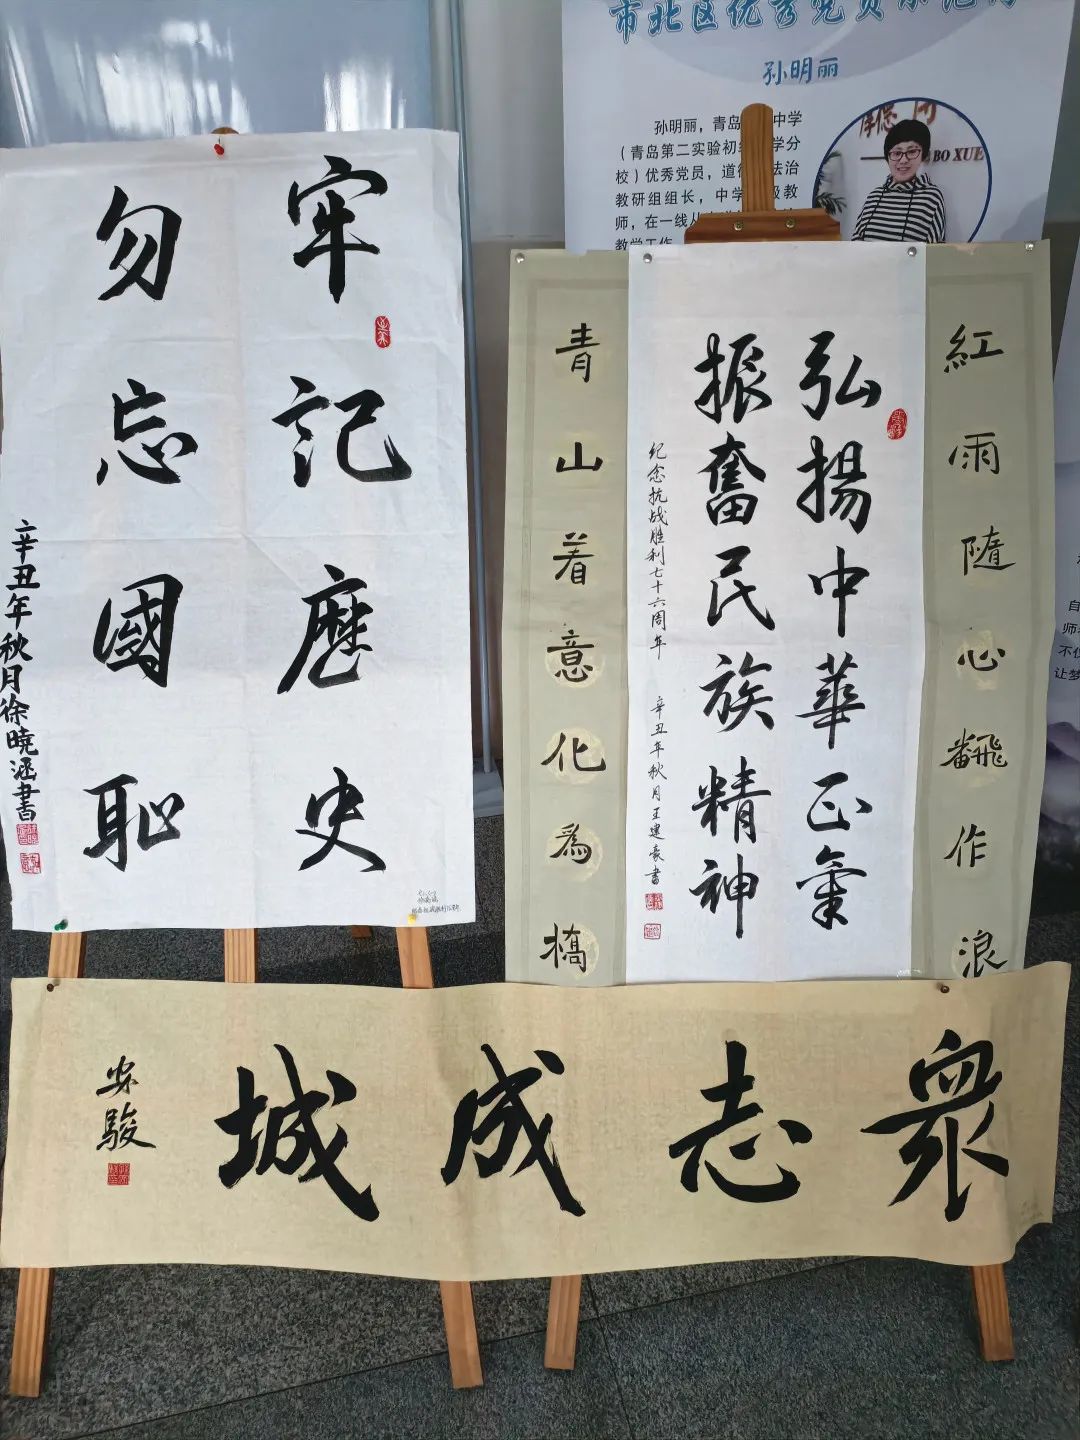 孙明丽
孙明丽，青岛
中学
（青岛第二实验初
学分
校）优秀党员，道
法治
教研组组长，中学
级教
师，在一线从
教学工作
BO XUE
牢記歷史
勿忘國恥
辛丑年秋月徐曉涵書
紅雨隨心飜作浪
弘揚中華正氣
振奮民族精神
纪念抗战胜利七十六周年 辛丑年秋月王建豪書
青山着意化為橋
衆志成城
安駿
自
师
不仅
让梦